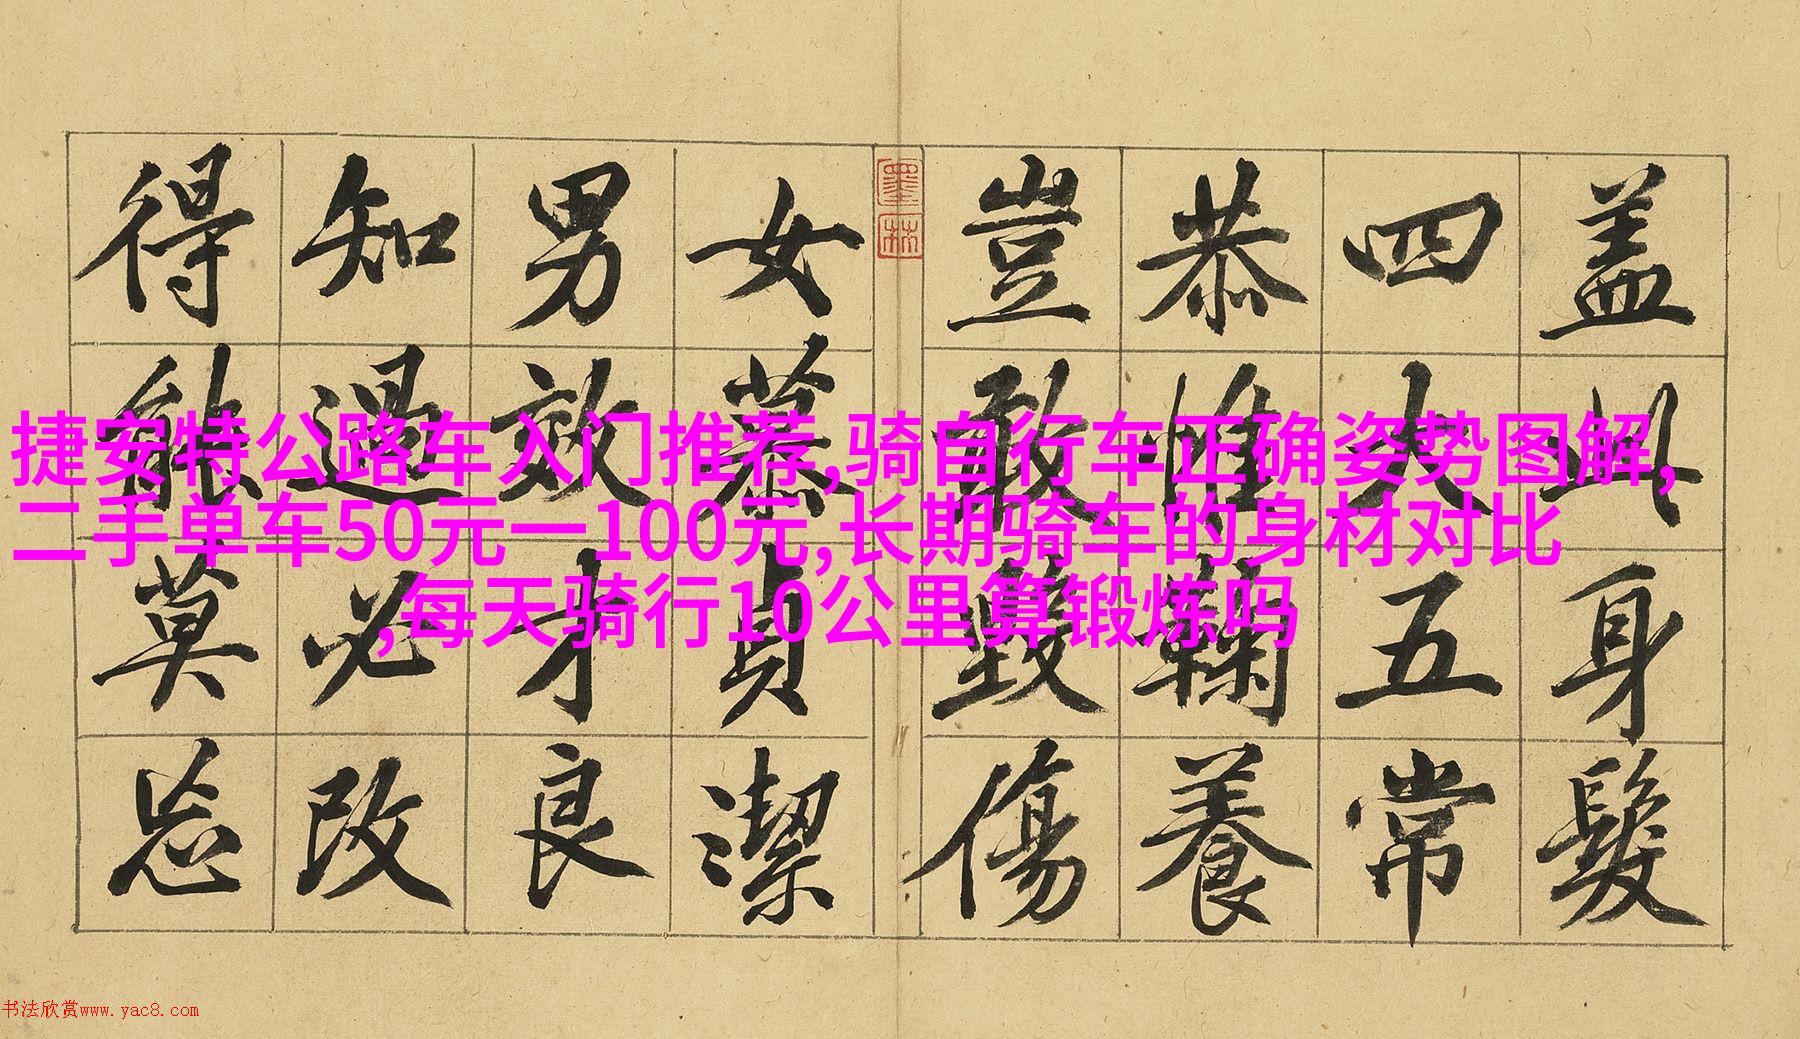 蓋此身髮
四大五常
恭惟鞠養
豈敢毀傷
女慕貞潔
男效才良
知過必改
得能莫忘
墨林
捷安特公路车入门推荐,骑自行车正确姿势图解,
二手单车50元一100元,长期骑车的身材对比
,每天骑行10公里算锻炼吗
书法欣赏www.yac8.com